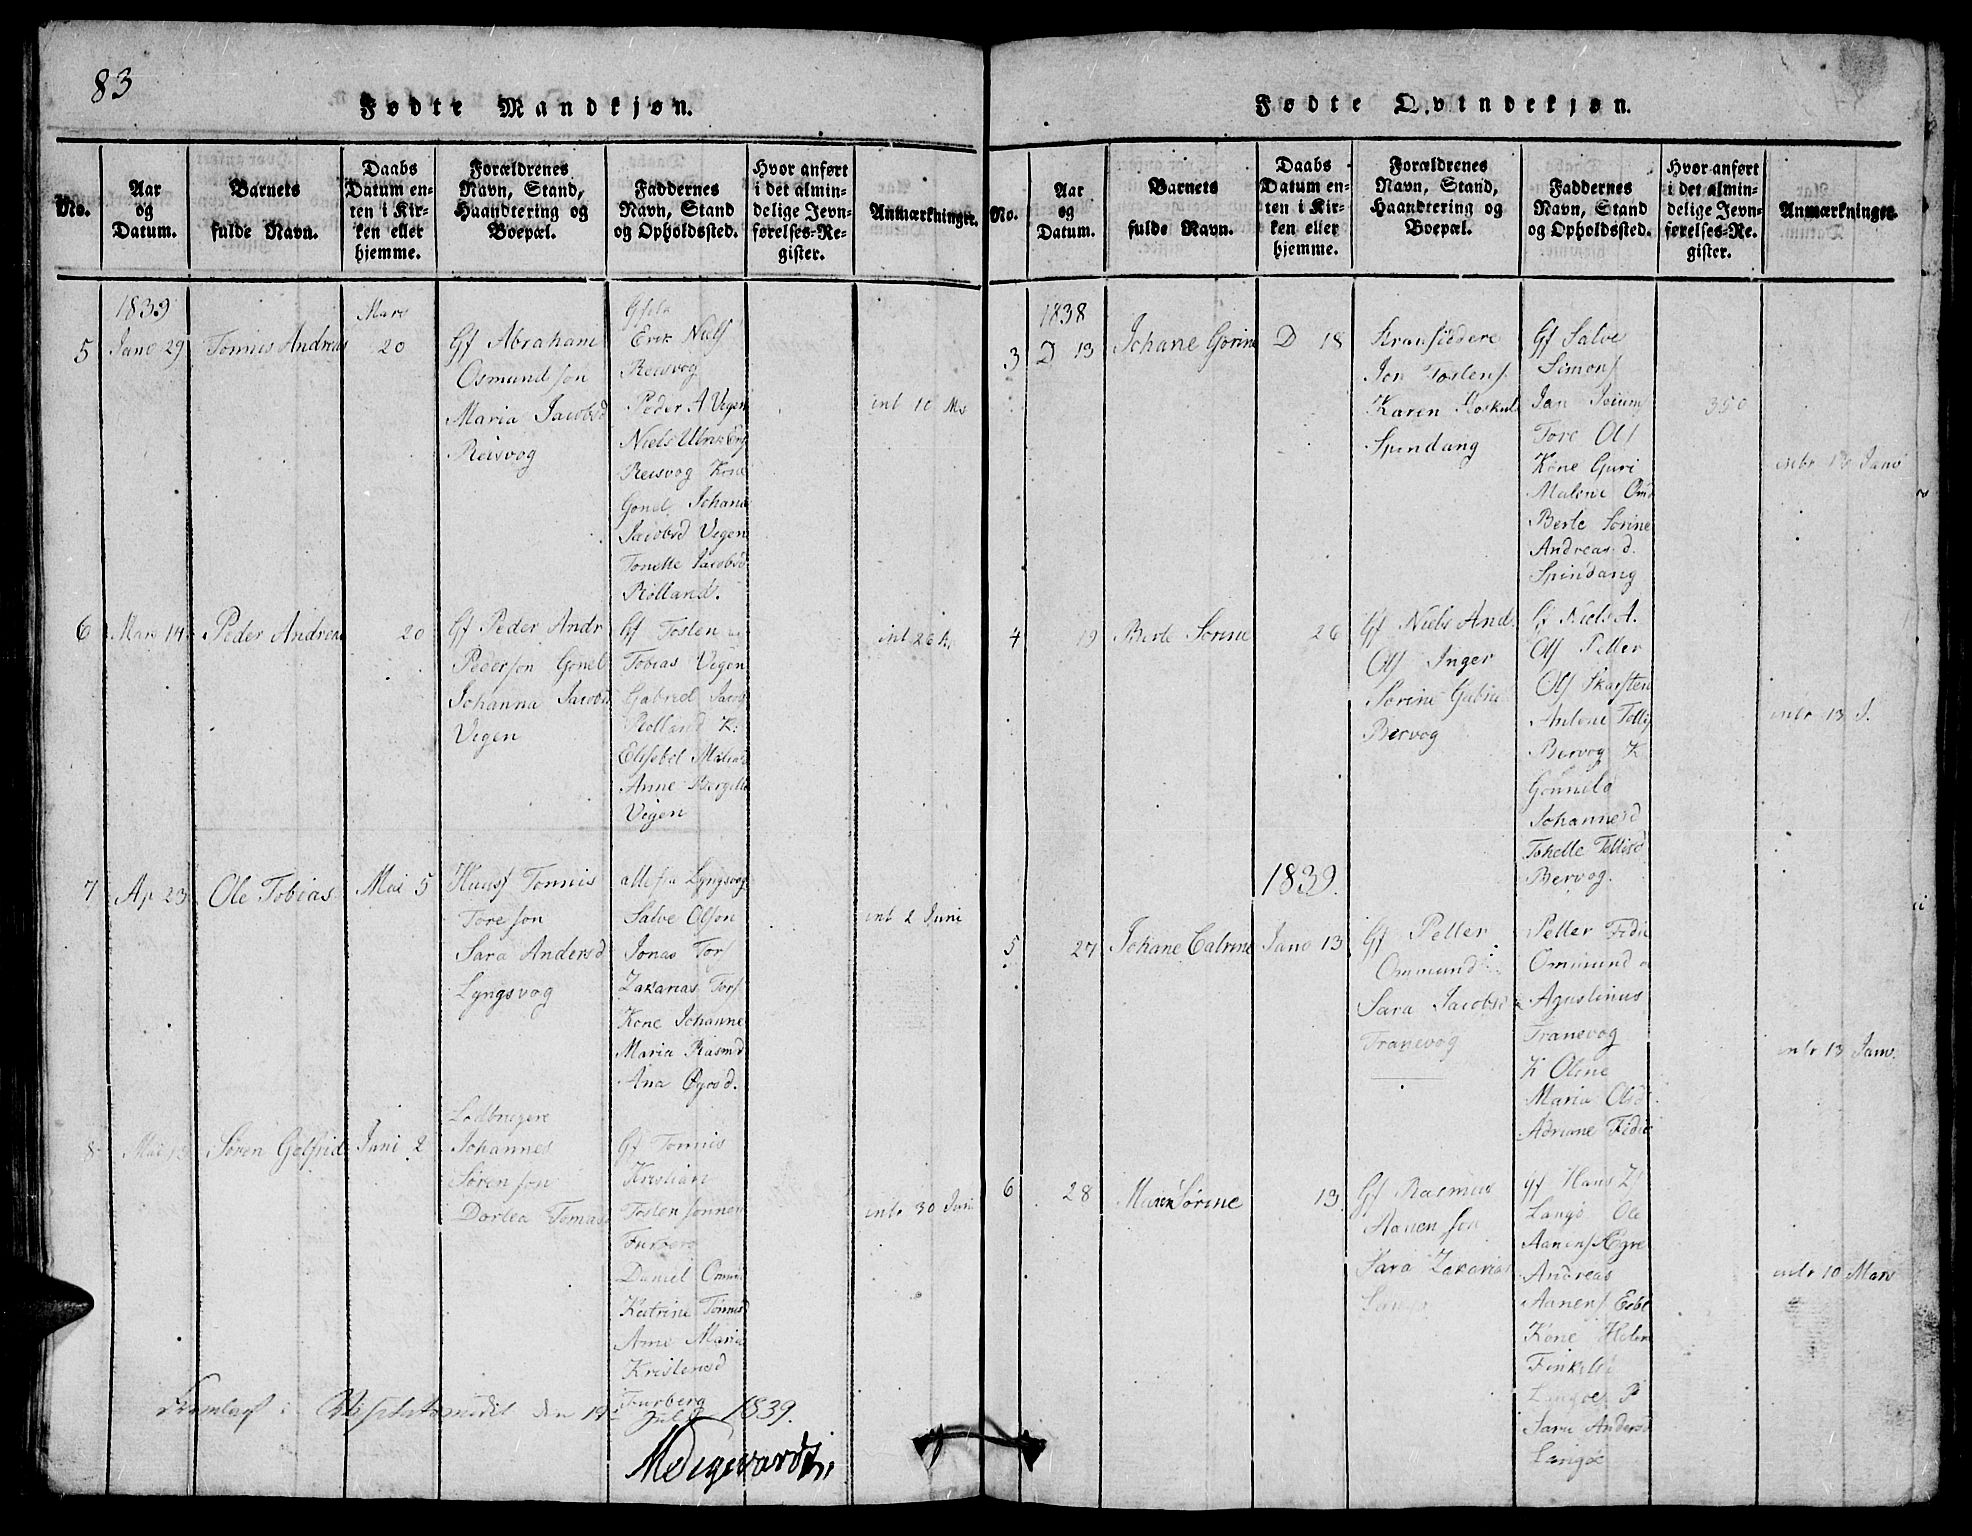 83
Fødte Mandkjøn.
No.
Aar
og
Datum.
Barnets
fulde Navn.
Daabs
Datum en-
ten i Kir-
ken eller
hjemme.
Forældrenes
Navn, Stand,
Haandtering og
Boepæl.
Faddernes
Navn, Stand
og Opholdssted.
Hvor anført
i det almin-
delige Jevn-
førelses-Re-
gister.
Anmærkninger.
5
1839
Janv 29
Tonnis Andreas
Mars
20
Gf Abraham
Osmundson
Maria Jacobsd
Reisvog
Erik Niels
Reisvog
Peder A Vegen
Niels
Reisvog Kone
Gonel Johana
Jacobsd Vegen
Tonette Jacobsd
Rolland.
int 10 Ms
6
Mars 14
Peder Andreas
20
Gf Peder Andr
Pederson Gonel
Johanna Jacobs
Vegen
Gf Tosten
Tobias Vegen
Gabriel Jacob
Rolland K.
Elisebet
Anne Bergitte
Vegen
int 26
7
Ap 23
Ole Tobias
Mai 5
Huusf Tonnis
Toreson
Sara Andersd
Lyngsvog
alle fra Lyngsvog
Salve Olson
Jonas Tors
Zakarias Tors
Kone Johanne
Maria Rasmd
Ana
int 2 Juni
8
Mai
Søren Gotfrid
Juni 2
Johannes
Sørenson
Dortea Tomasd
Gf Tonnis
Kristian
Tostensønner
Furberg
Daniel Omun
Katrine Tonnesd
Ane Maria
Kristensd
Furberg
intr 30 Juni
i den 19 Juli 1839.
Fødte Qvindekjøn.
No.
Aar
og
Datum.
Barnets
fulde Navn.
Daabs
Datum en-
ten i Kir-
ken eller
hjemme.
Forældrenes
Navn, Stand,
Haandtering og
Boepæl.
Faddernes
Navn, Stand
og Opholdssted.
Hvor anført
i det almin-
delige Jevn-
førelses-Re-
gister.
Anmærkninger.
3
1838
D 13
Johane Gorine
D 18
Jon Tostens
Karen
Spindang
Gf Salve
Simons
Jan
Tore Ols
Kone Guri
Malene Omd
Berte Sorine
Andreasd.
Spindang
350
intr 13 Janv
4
19
Berte Sorine
26
Gf Niels And.
Ols Inger
Sorine Gabrie
Bervog
Gf Niels A.
Ols Peller
Ols Skarsten
Antone Tollis
Bervog K
Gonnild
Johannesd
Tohelle Tollisd
Bervog.
intr 13 J.
1839.
5
27
Johane Catrine
Janv 13
Gf Peller
Ommund
Sara Jacobsd
Tranevog
Peller Fedie
Ommund
Agustinus
Tranevog
K Olene
Maria Olsd
Adriane Fedie
intr 13 Janv.
6
28
Maren Sørine
13
Gf Rasmus
Aanenson
Sara Zakarias
Gf Hans Z
Langø Ole
Aanens
Andreas
Aanens
Kone Helen
Langøe P
Sara Andersd
Langøe
intr 10 Mars